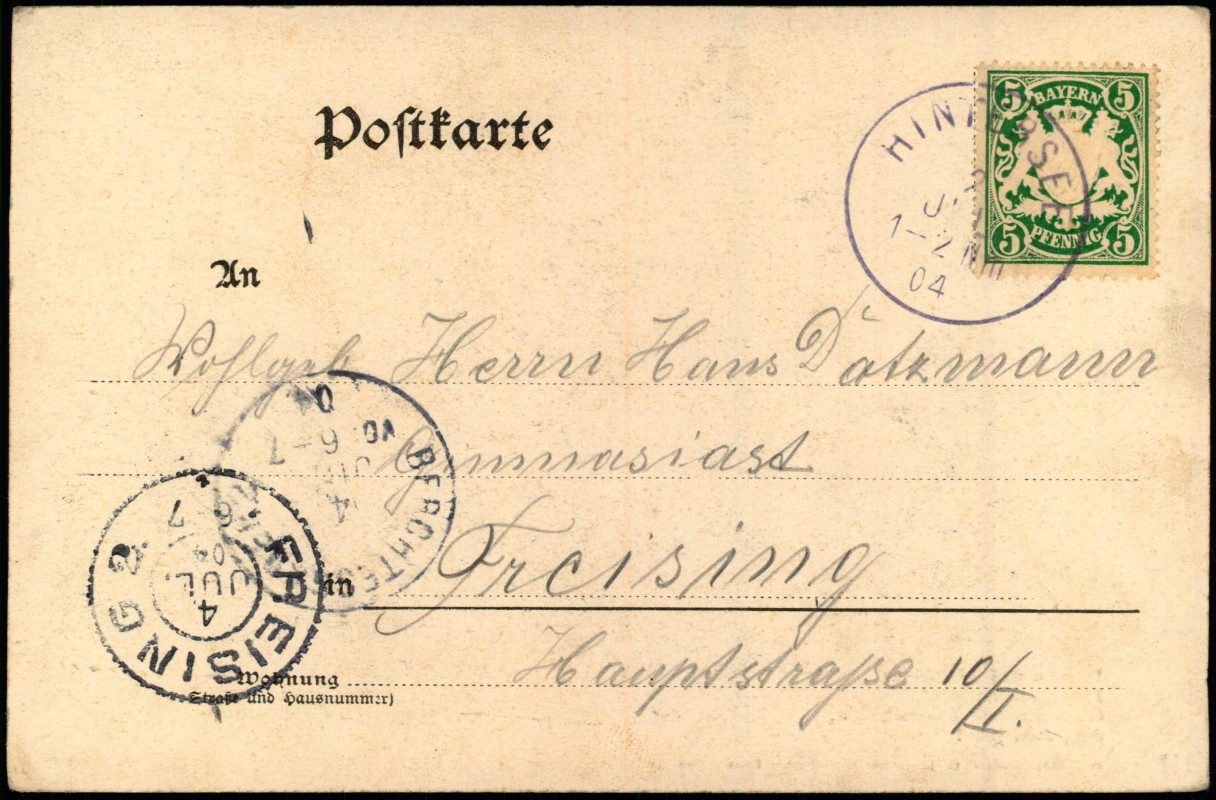 Postkarte
5 BAYERN 5
5 PFENNIG 5
HINTERSEE
1-2 NM
04
An
Wohlgeb Herrn Hans Datzmann
Gymnasiast
BERCHTES
4
JUL
6-7
04
FREISING 2.
4
JUL.
04
6 7
in Freising
Wohnung Hauptstraße 10/I.
Straße und Hausnummer)